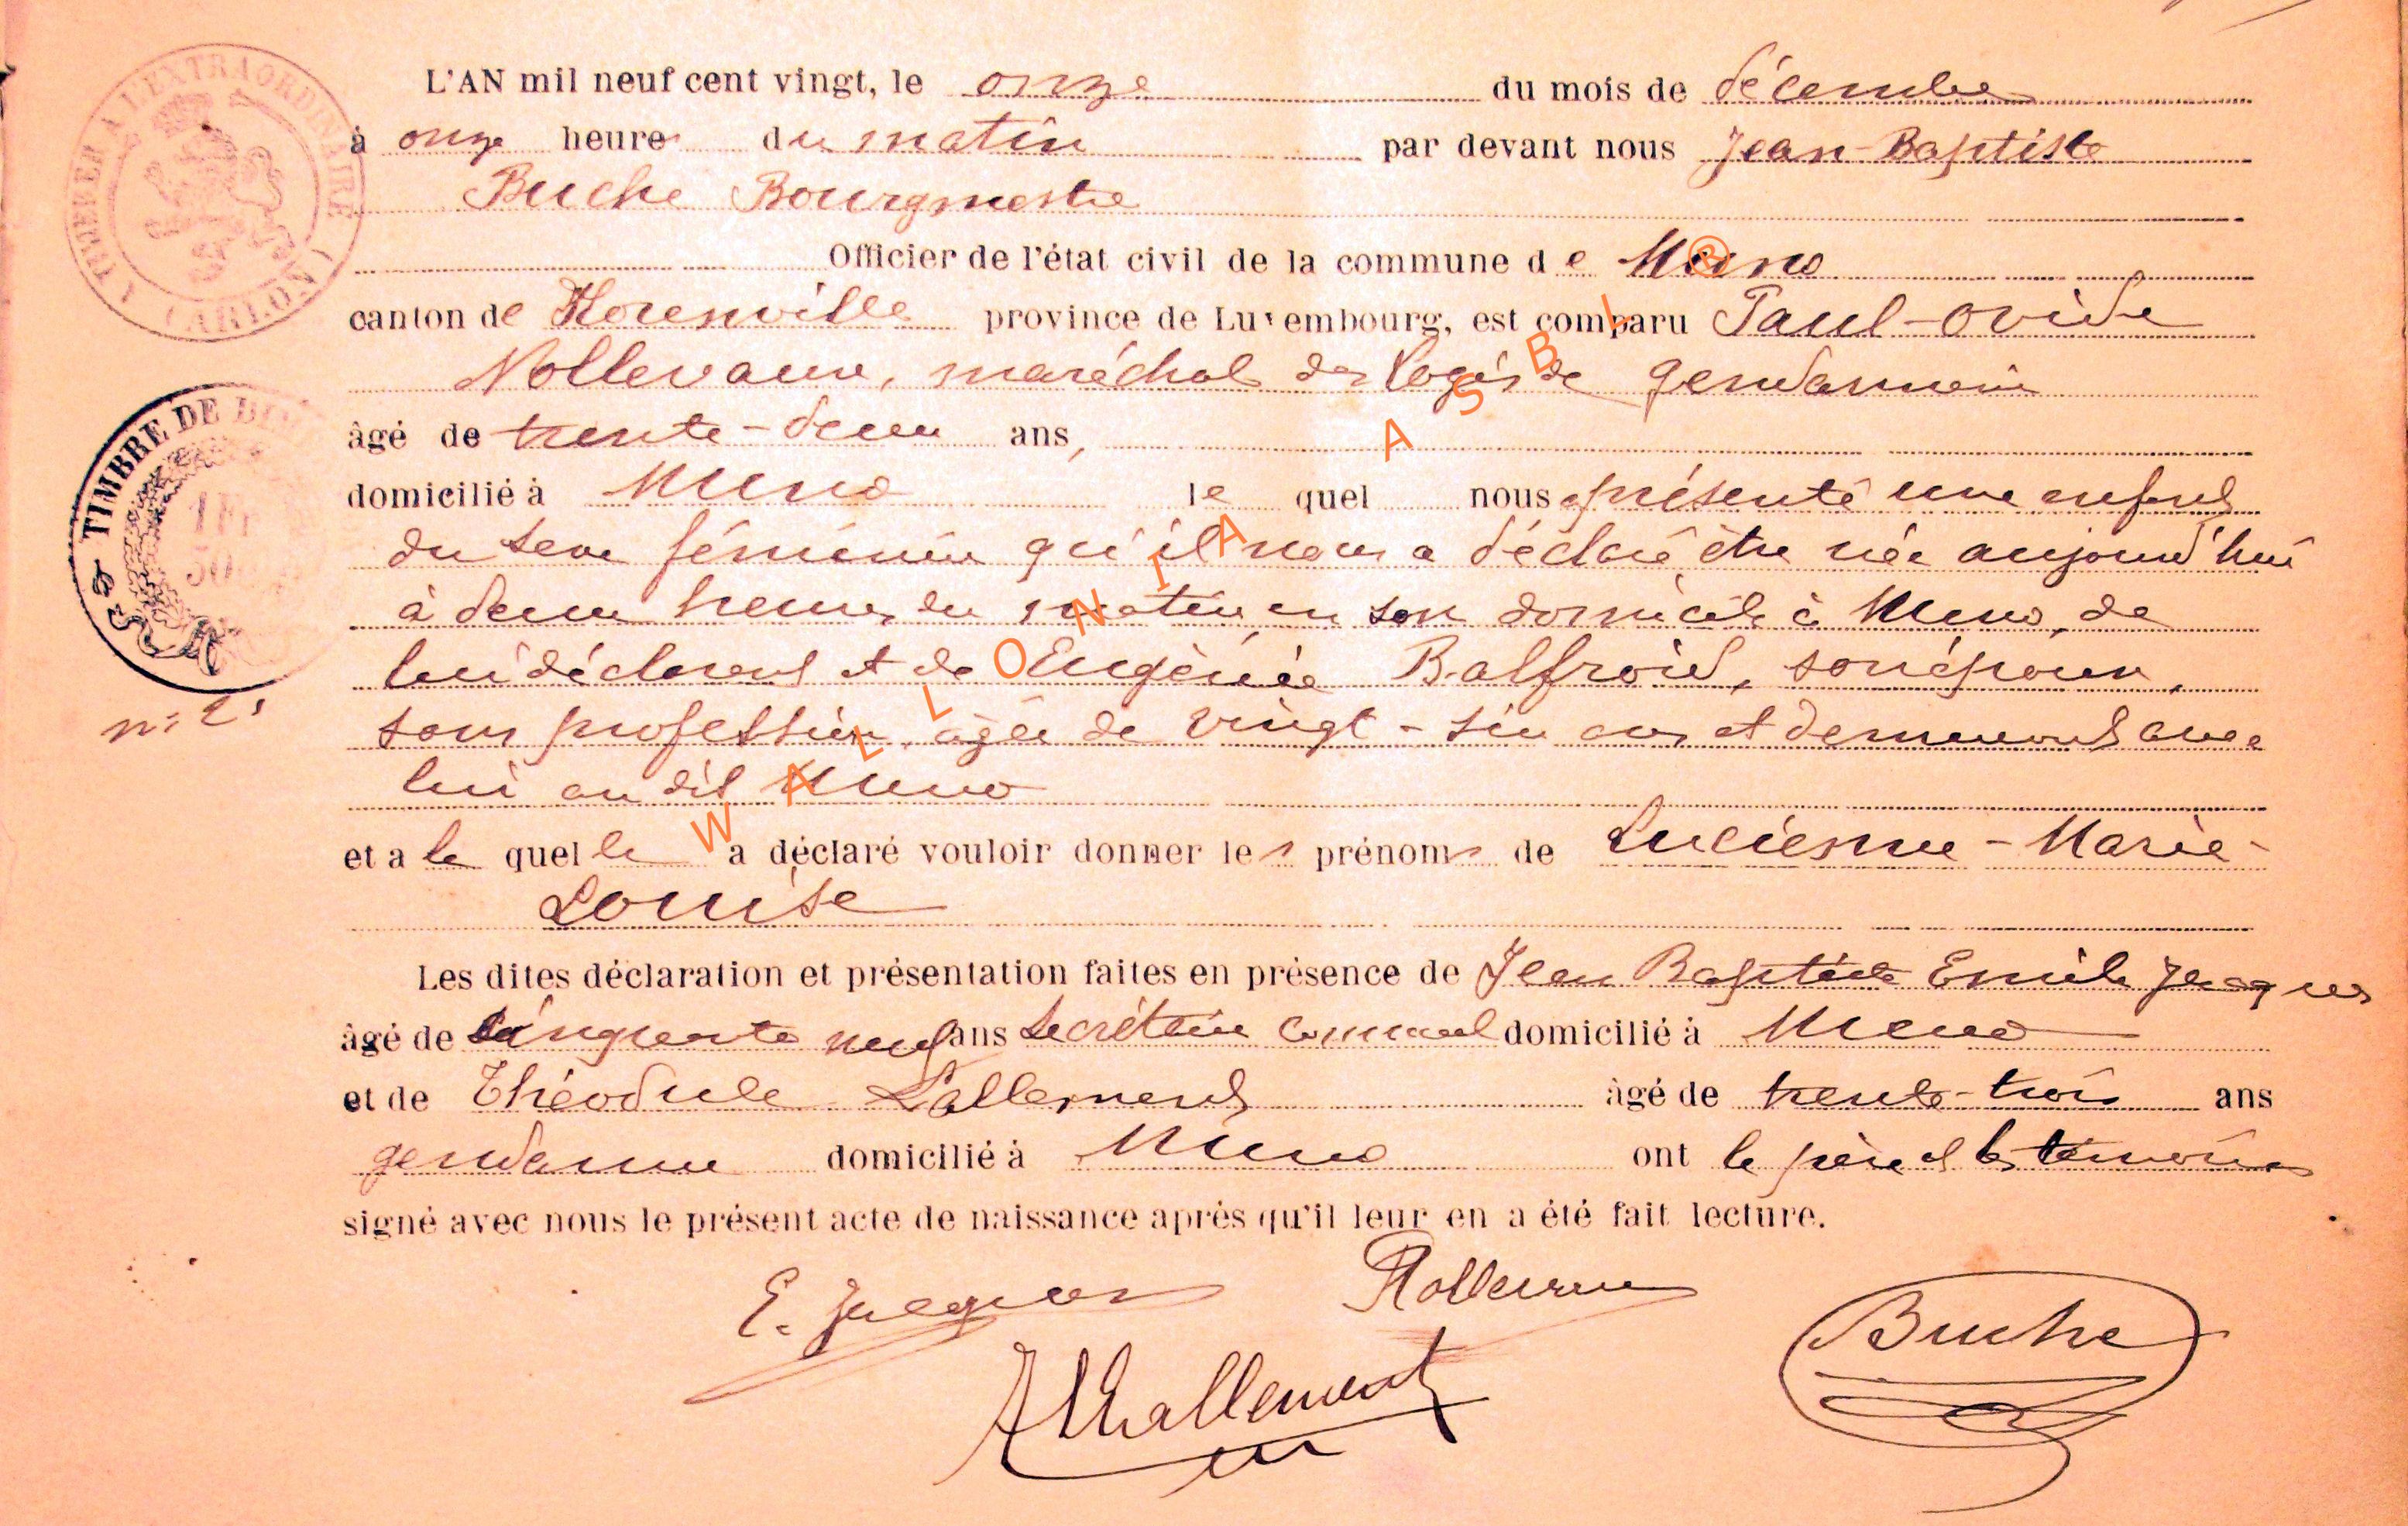 L'AN mil neuf cent vingt, le onze du mois de décembre
à onze heures du matin par devant nous Jean-Baptiste
Buche Bourgmestre
Officier de l'état civil de la commune de Muno
canton de Florenville province de Luxembourg, est comparu Paul-Ovide
Nollevaux, maréchal des logis de gendarmerie
âgé de trente-deux ans,
domicilié à Muno lequel nous a présenté une enfant
du sexe féminin qu'il nous a déclaré être née aujourd'hui
à deux heures du matin en son domicile à Muno, de
lui déclarant et de Eugénie Balfroid, son épouse,
sans profession, âgée de vingt-six ans et demeurant avec
lui au dit Muno
et a laquelle a déclaré vouloir donner les prénoms de Lucienne-Marie-
Louise
Les dites déclaration et présentation faites en présence de Jean Baptiste Emile Jacques
âgé de cinquante neuf ans secrétaire communal domicilié à Muno
et de Théodule Lallemend âgé de trente-trois ans
gendarme domicilié à Muno ont le père et les témoins
signé avec nous le présent acte de naissance après qu'il leur en a été fait lecture.
E. Jacques Nollevaux
Lallement Buche
TIMBRER A L'EXTRAORDINAIRE
(ARLON)
TIMBRE DE
1 Fr
50
WALLONIA ASBL ®